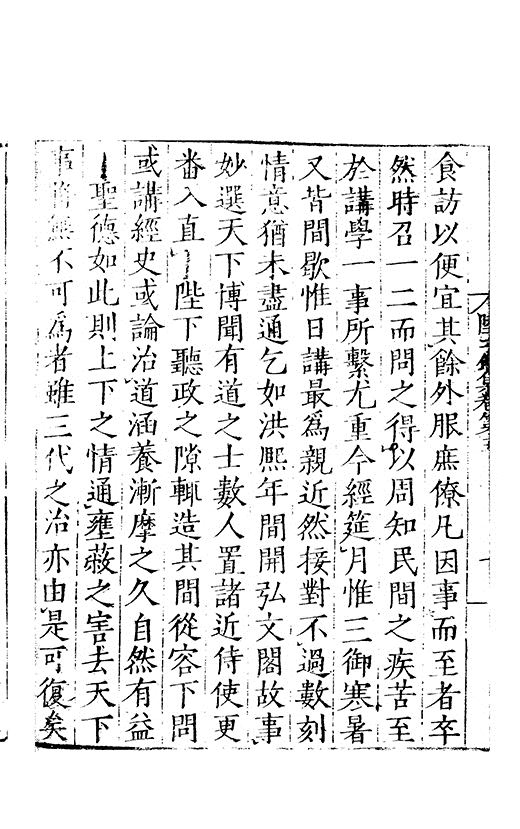 食訪以便宜其餘外服庶僚凡因事而至者卒
然時召一二而問之得以周知民間之疾苦至
於講學一事所繫尤重今經筵月惟三御寒暑
又皆間歇惟日講最爲親近然接對不過數刻
情意猶未盡通乞如洪熙年間開弘文閣故事
妙選天下博聞有道之士數人置諸近侍使更
番入直陛下聽政之隙輒造其間從容下問
或講經史或論治道涵養漸摩之久自然有益
聖德如此則上下之情通壅蔽之害去天下
事將無不可爲者雖三代之治亦由是可復矣